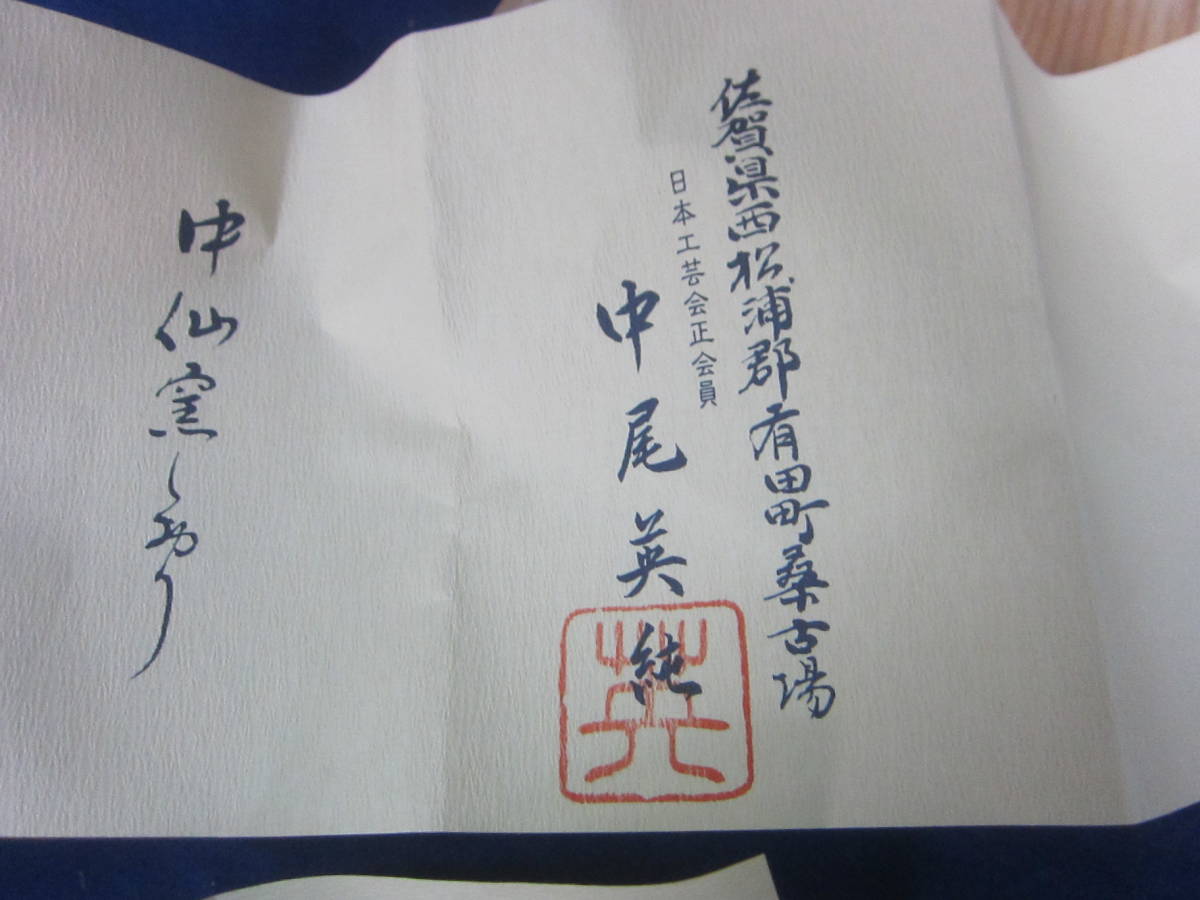 佐賀県西松浦郡有田町桑古場
日本工芸会正会員
中尾英純
英
中仙窯しおり